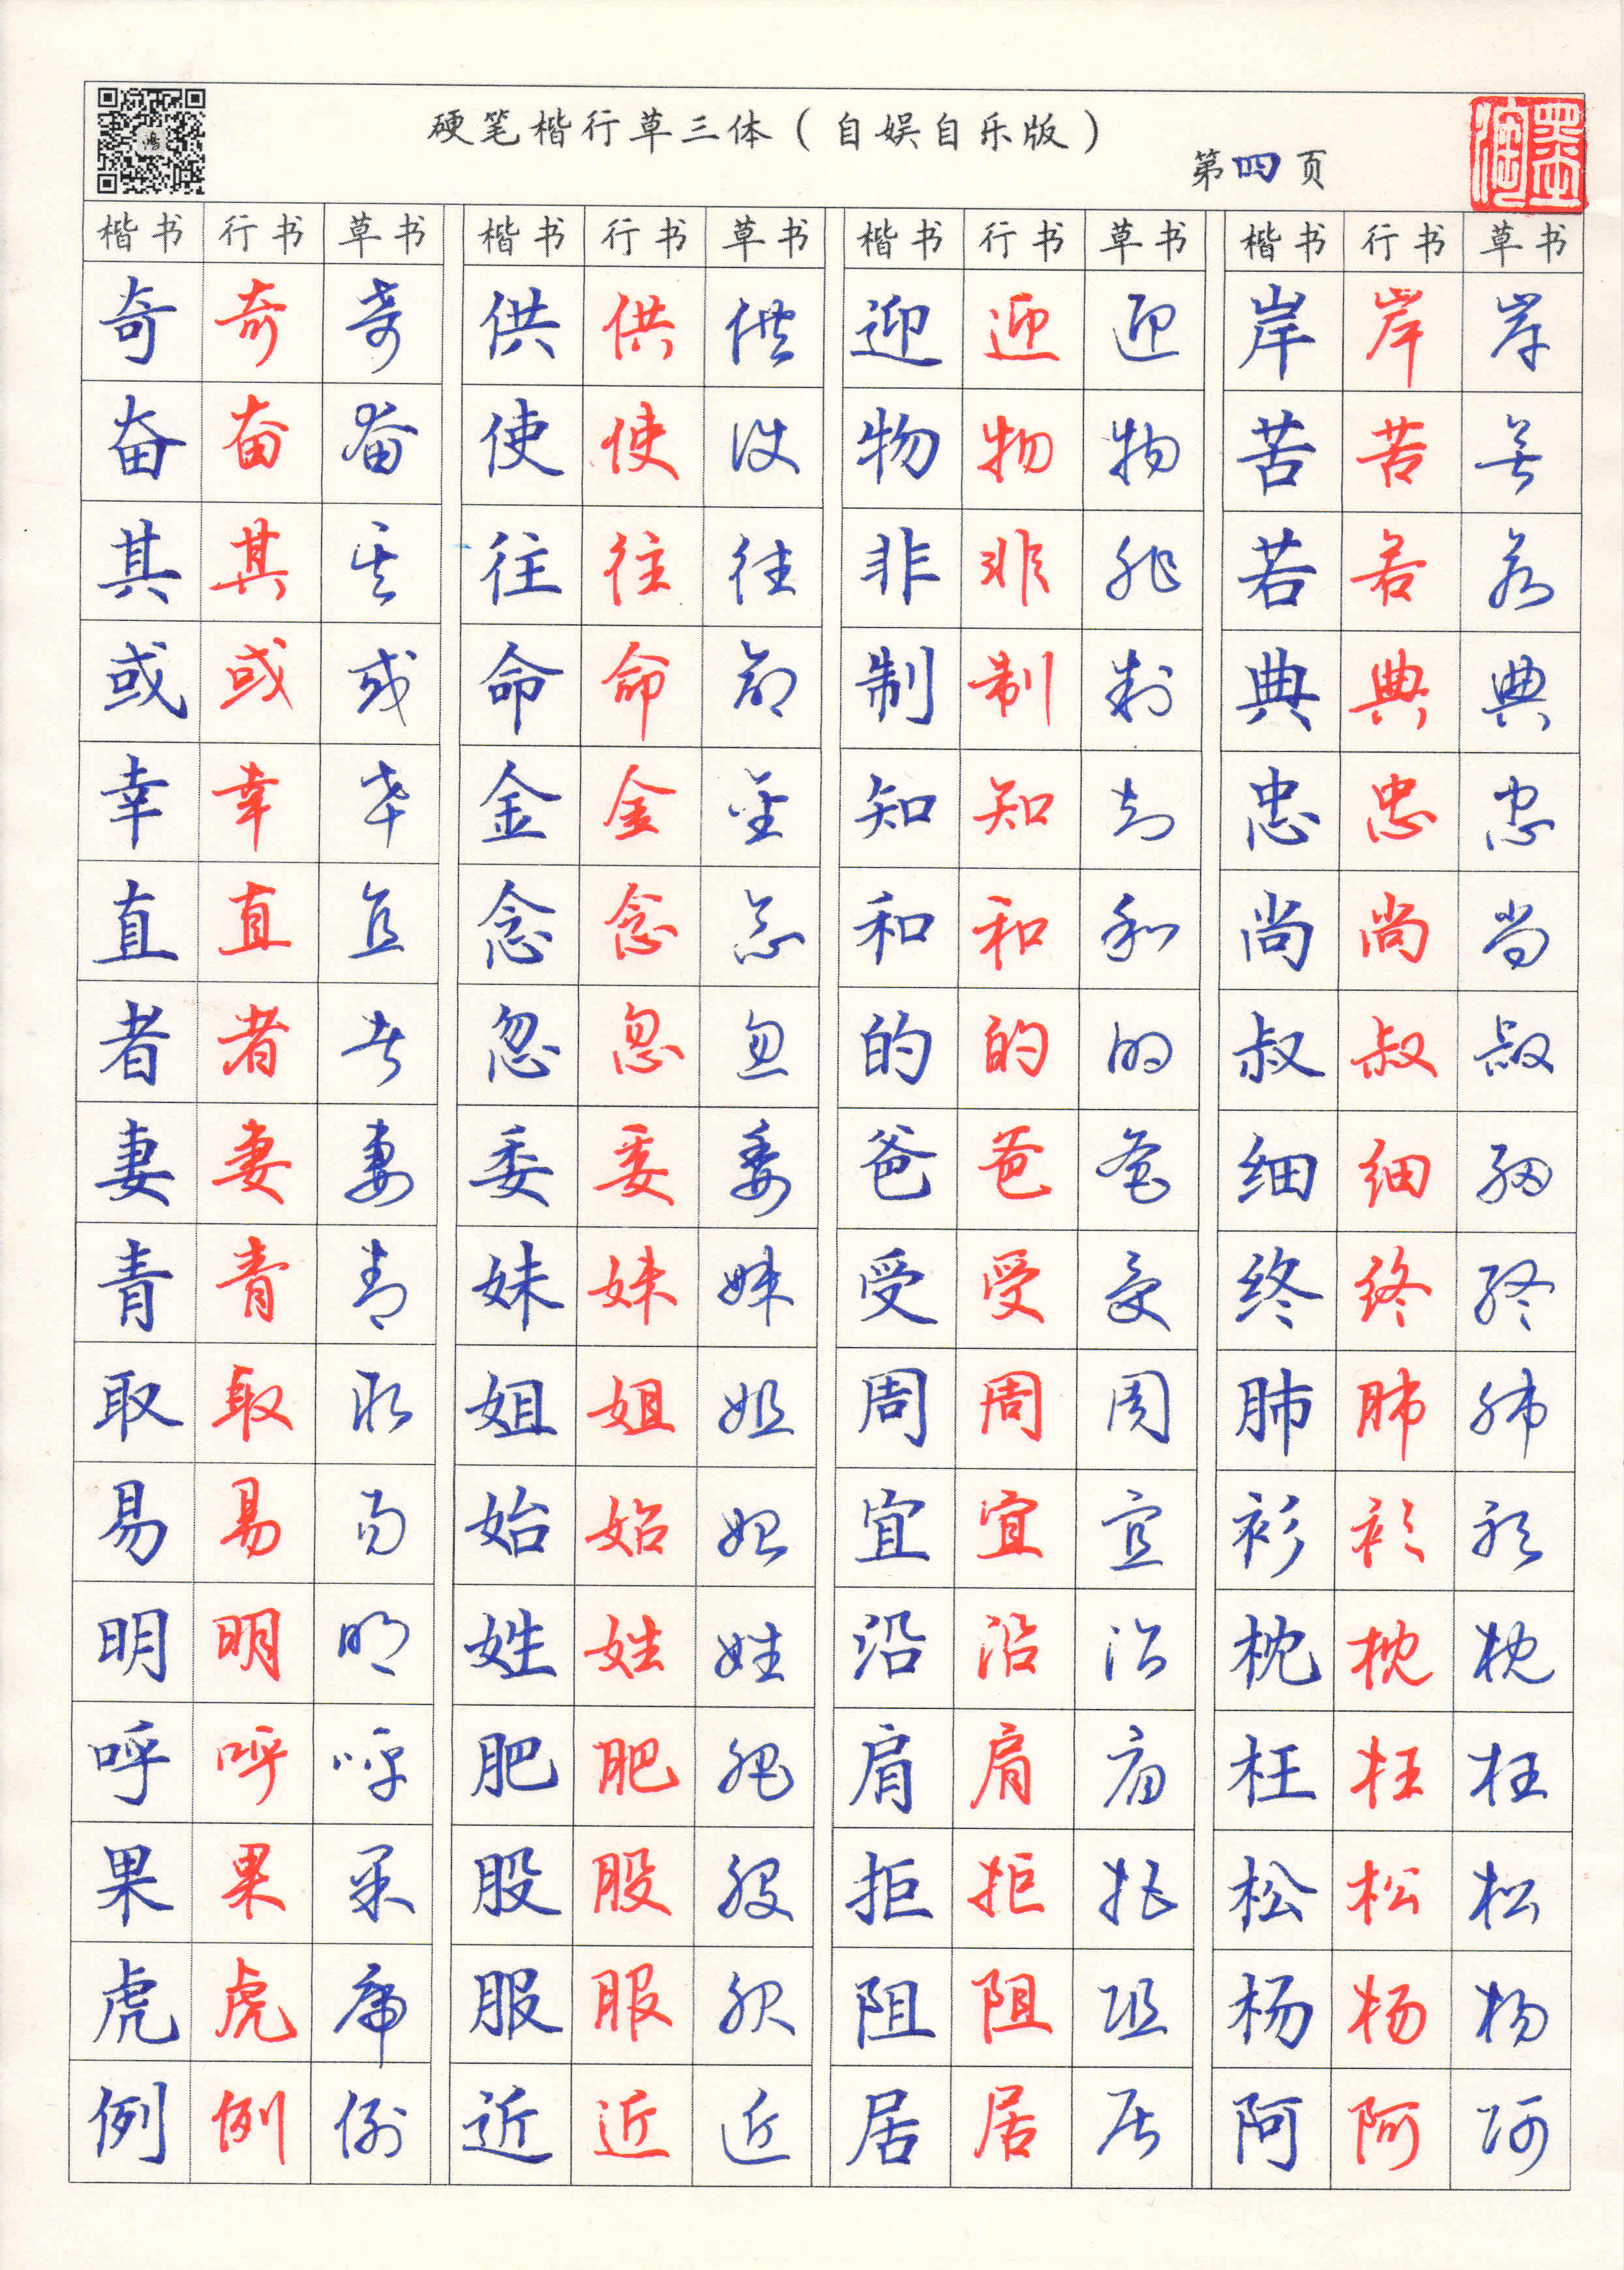 硬笔楷行草三体(自娱自乐版)
第四页
墨海
楷书 行书 草书 楷书 行书 草书 楷书 行书 草书 楷书 行书 草书
奇 奇 奇 供 供 供 迎 迎 迎 岸 岸 岸
奋 奋 奋 使 使 使 物 物 物 苦 苦 苦
其 其 其 往 往 往 非 非 非 若 若 若
或 或 或 命 命 命 制 制 制 典 典 典
幸 幸 幸 金 金 金 知 知 知 忠 忠 忠
直 直 直 念 念 念 和 和 和 尚 尚 尚
者 者 者 忽 忽 忽 的 的 的 叔 叔 叔
妻 妻 妻 委 委 委 爸 爸 爸 细 细 细
青 青 青 妹 妹 妹 受 受 受 终 终 终
取 取 取 姐 姐 姐 周 周 周 肺 肺 肺
易 易 易 始 始 始 宜 宜 宜 衫 衫 衫
明 明 明 姓 姓 姓 沿 沿 沿 枕 枕 枕
呼 呼 呼 肥 肥 肥 肩 肩 肩 枉 枉 枉
果 果 果 股 股 股 拒 拒 拒 松 松 松
虎 虎 虎 服 服 服 阻 阻 阻 杨 杨 杨
例 例 例 近 近 近 居 居 居 阿 阿 阿